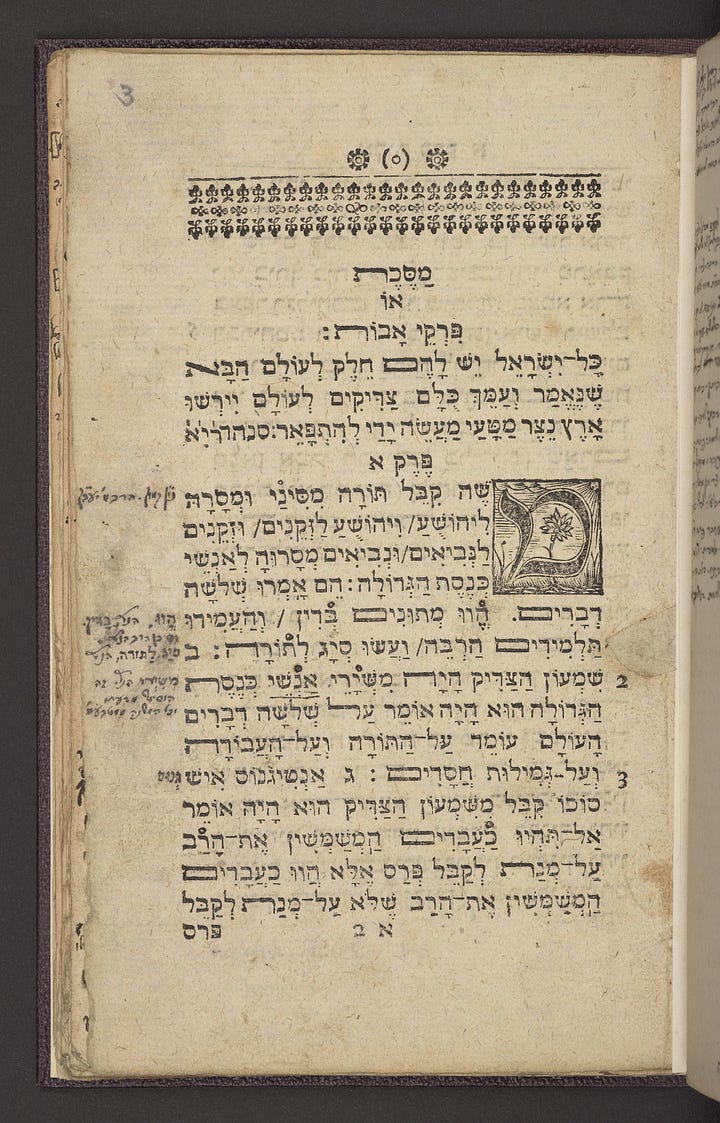 3
(ο)
מַסֶּכֶת
אוֹ
פִּרְקֵי אָבוֹת :
כָּל־יִשְׂרָאֵל יֵשׁ לָהֶם חֵלֶק לְעוֹלָם הַבָּא
שֶׁנֶּאֱמַר וְעַמֵּךְ כֻּלָּם צַדִּיקִים לְעוֹלָם יִירְשׁוּ
אָרֶץ נֵצֶר מַטָּעַי מַעֲשֵׂה יָדַי לְהִתְפָּאֵר: סנהדרי״א
פֶּרֶק א
מֹשֶׁה קִבֵּל תּוֹרָה מִסִּינַי וּמְסָרָהּ
לִיהוֹשֻׁעַ/ וִיהוֹשֻׁעַ לַזְּקֵנִים/ וּזְקֵנִים
לַנְּבִיאִים/ וּנְבִיאִים מְסָרוּהָ לְאַנְשֵׁי
כְּנֶסֶת הַגְּדוֹלָה: הֵם אָמְרוּ שְׁלֹשָׁה
דְבָרִים. הֱווּ מְתוּנִים בַּדִּין / וְהַעֲמִידוּ
תַּלְמִידִים הַרְבֵּה/ וַעֲשׂוּ סְיָג לַתּוֹרָה : ב
שִׁמְעוֹן הַצַּדִּיק הָיָה מִשְּׁיָרֵי אַנְשֵׁי כְּנֶסֶת 2
הַגְּדוֹלָה הוּא הָיָה אוֹמֵר עַל שְׁלֹשָׁה דְבָרִים
הָעוֹלָם עוֹמֵד עַל־הַתּוֹרָה וְעַל־הָעֲבוֹדָה
וְעַל־גְּמִילוּת חֲסָדִים : ג אַנְטִיגְנוֹס אִישׁ 3
סוֹכוֹ קִבֵּל מִשִּׁמְעוֹן הַצַּדִּיק הוּא הָיָה אוֹמֵר
אַל־תִּהְיוּ כַּעֲבָדִים הַמְשַׁמְּשִׁין אֶת־הָרַב
עַל־מְנָת לְקַבֵּל פְּרַס אֶלָּא הֱווּ כַּעֲבָדִים
הַמְשַׁמְּשִׁין אֶת־הָרַב שֶׁלֹּא עַל־מְנָת לְקַבֵּל
א ב פְּרַס